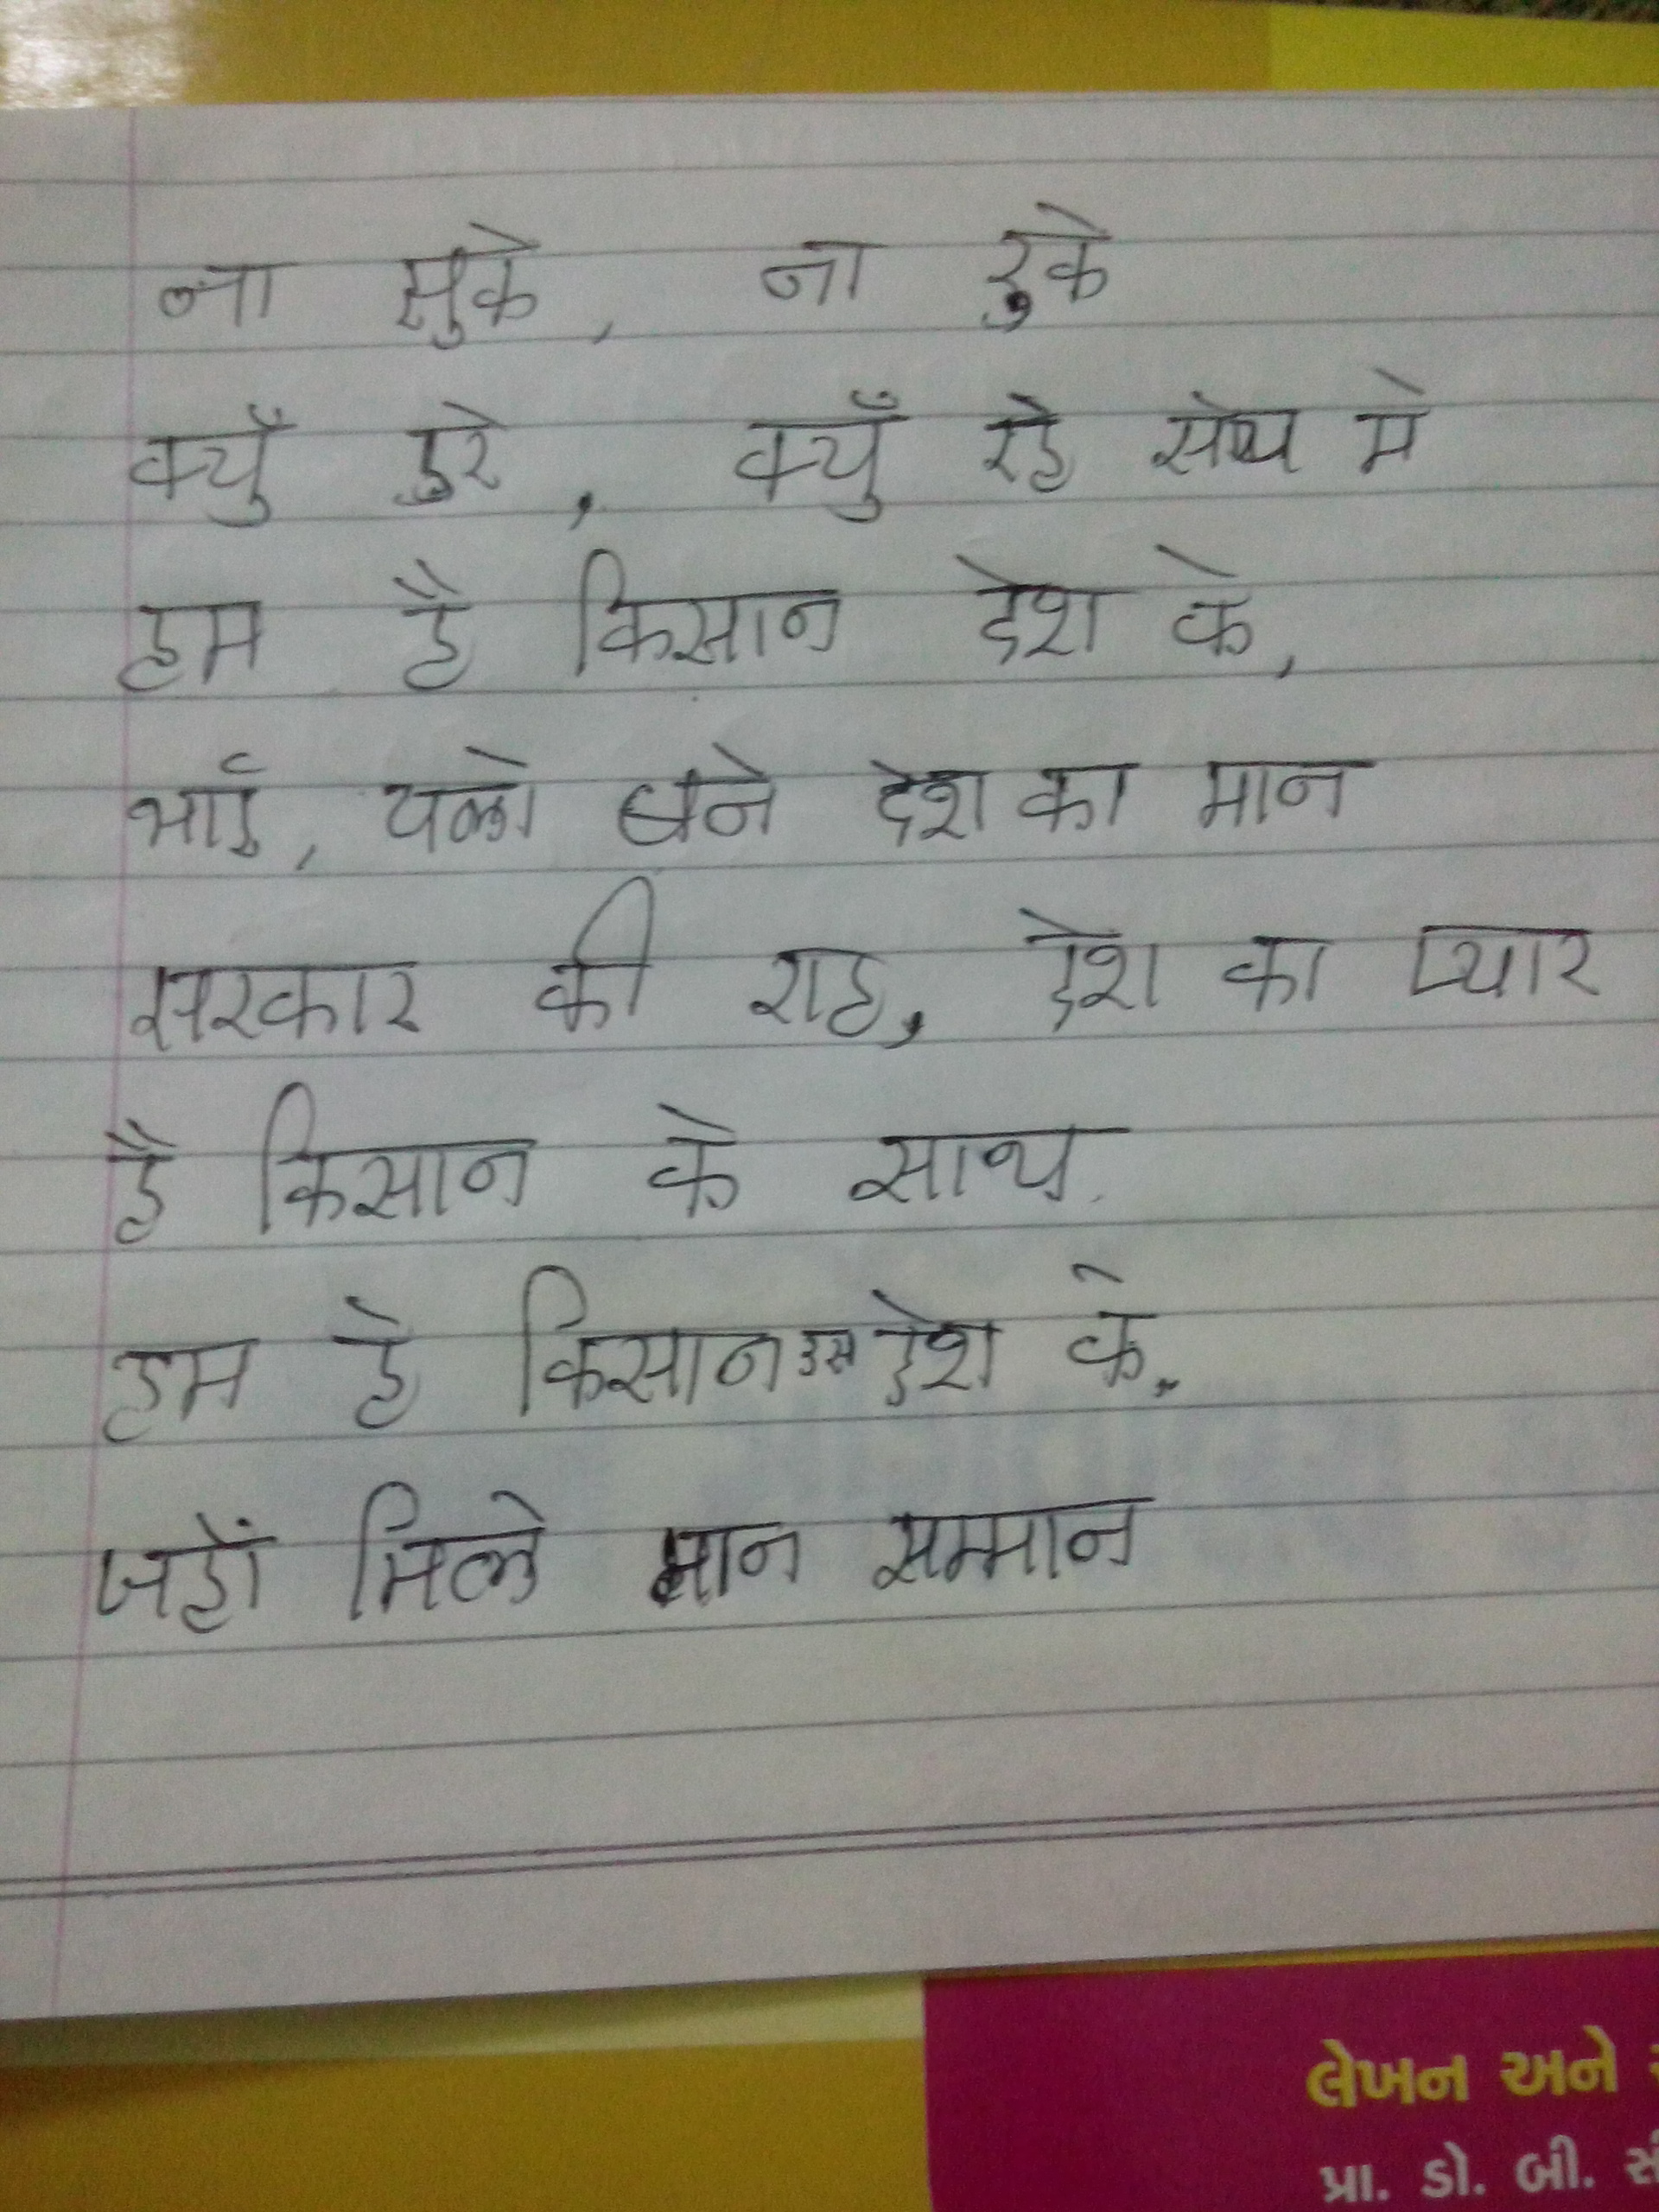 ना सुके, ना रुके
क्युँ डरे, क्युँ रहे सोच मे
हम है किसान देश के,
भाई, चलो बने देश का मान
सरकार की राह, देश का प्यार
है किसान के साथ.
हम हे किसान उस देश के.
जहाँ मिले मान सम्मान
લેખન અને
પ્રા. ડો. બી.